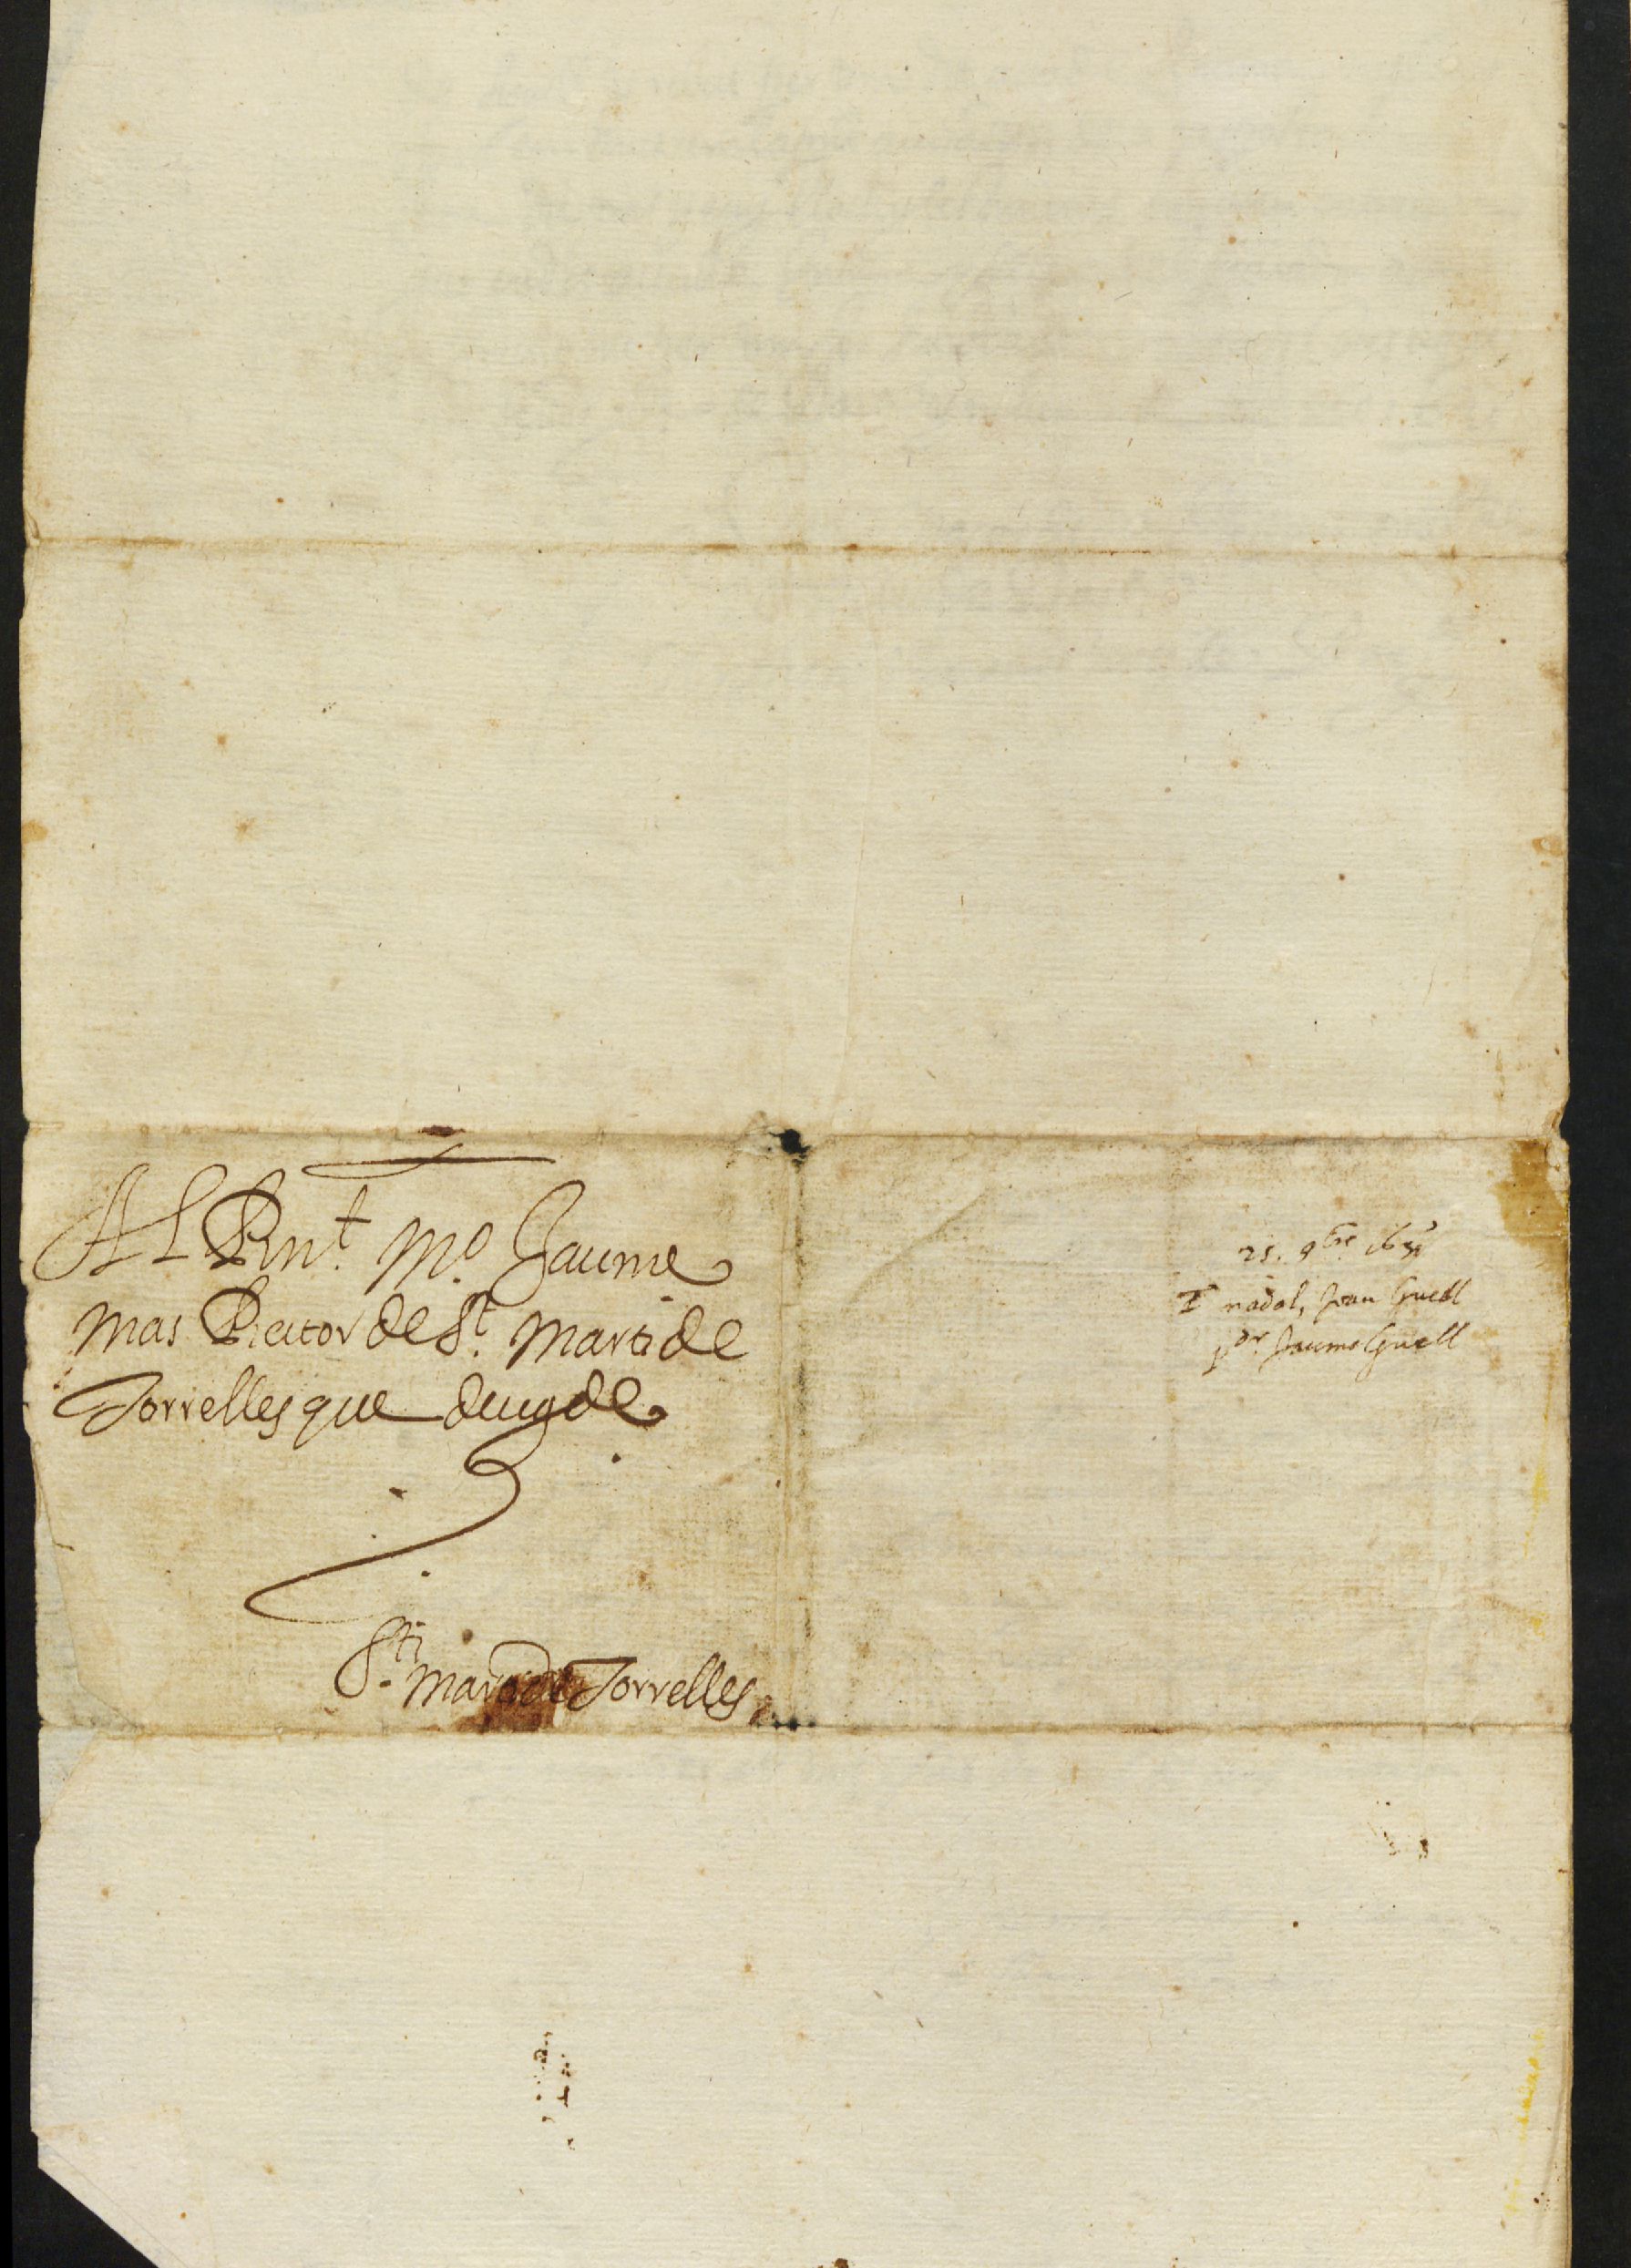 Al Rnt. Mo. Jaume
Mas Rector de St. Marti de
Torrelles que deu gde
St. Marti de Torrelles
25. 9bre 163
nadal, Joan Guell
pdr. Jaume Guell